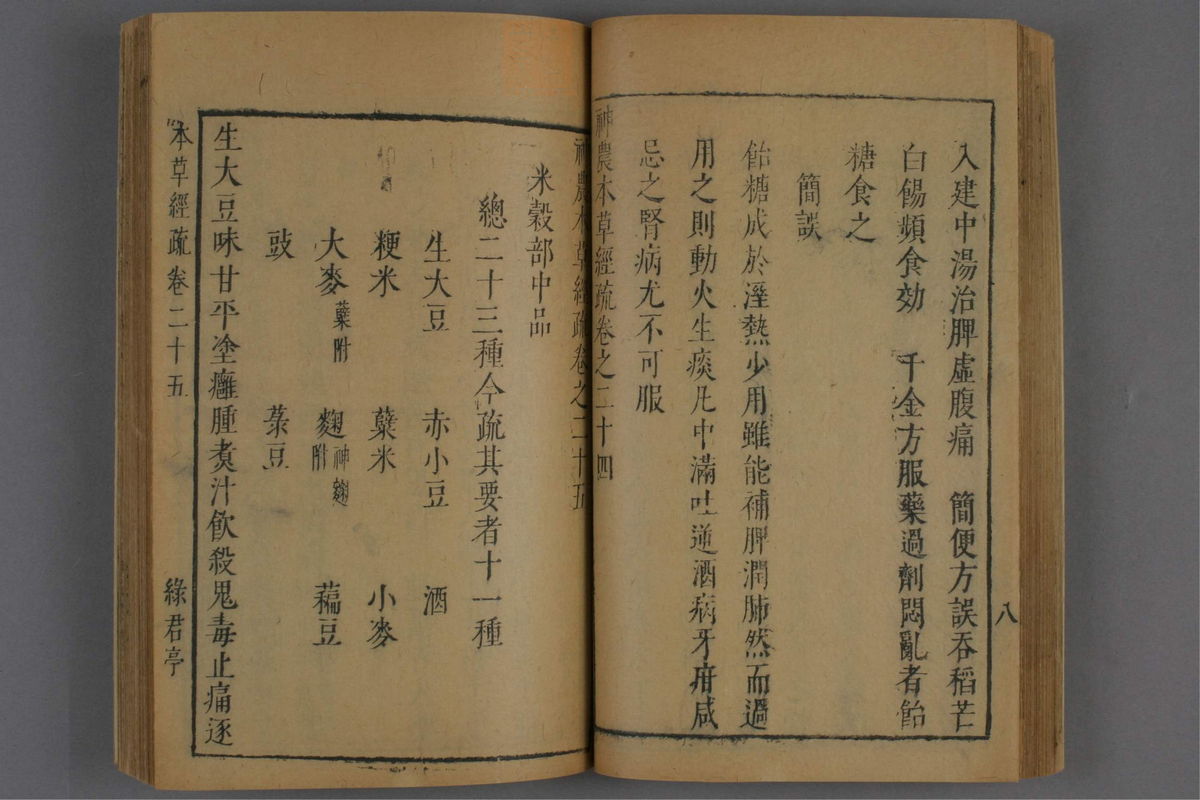 入建中湯治脾虛腹痛　簡便方誤吞稻芒
白餳頻食効　千金方服藥過劑悶亂者飴
糖食之
簡誤
飴糖成於溼熱少用雖能補脾潤肺然而過
用之則動火生痰凡中滿吐逆酒病牙疳咸
忌之腎病尤不可服
神農本草經疏卷之二十四
八
神農本草經疏卷之二十五
米穀部中品
總二十三種今疏其要者十一種
生大豆　赤小豆　酒
粳米　蘖米　小麥
大麥蘖附　麴神麴附　藊豆
豉　菉豆
生大豆味甘平塗癰腫煑汁飲殺鬼毒止痛逐
本草經疏　卷二十五　綠君亭